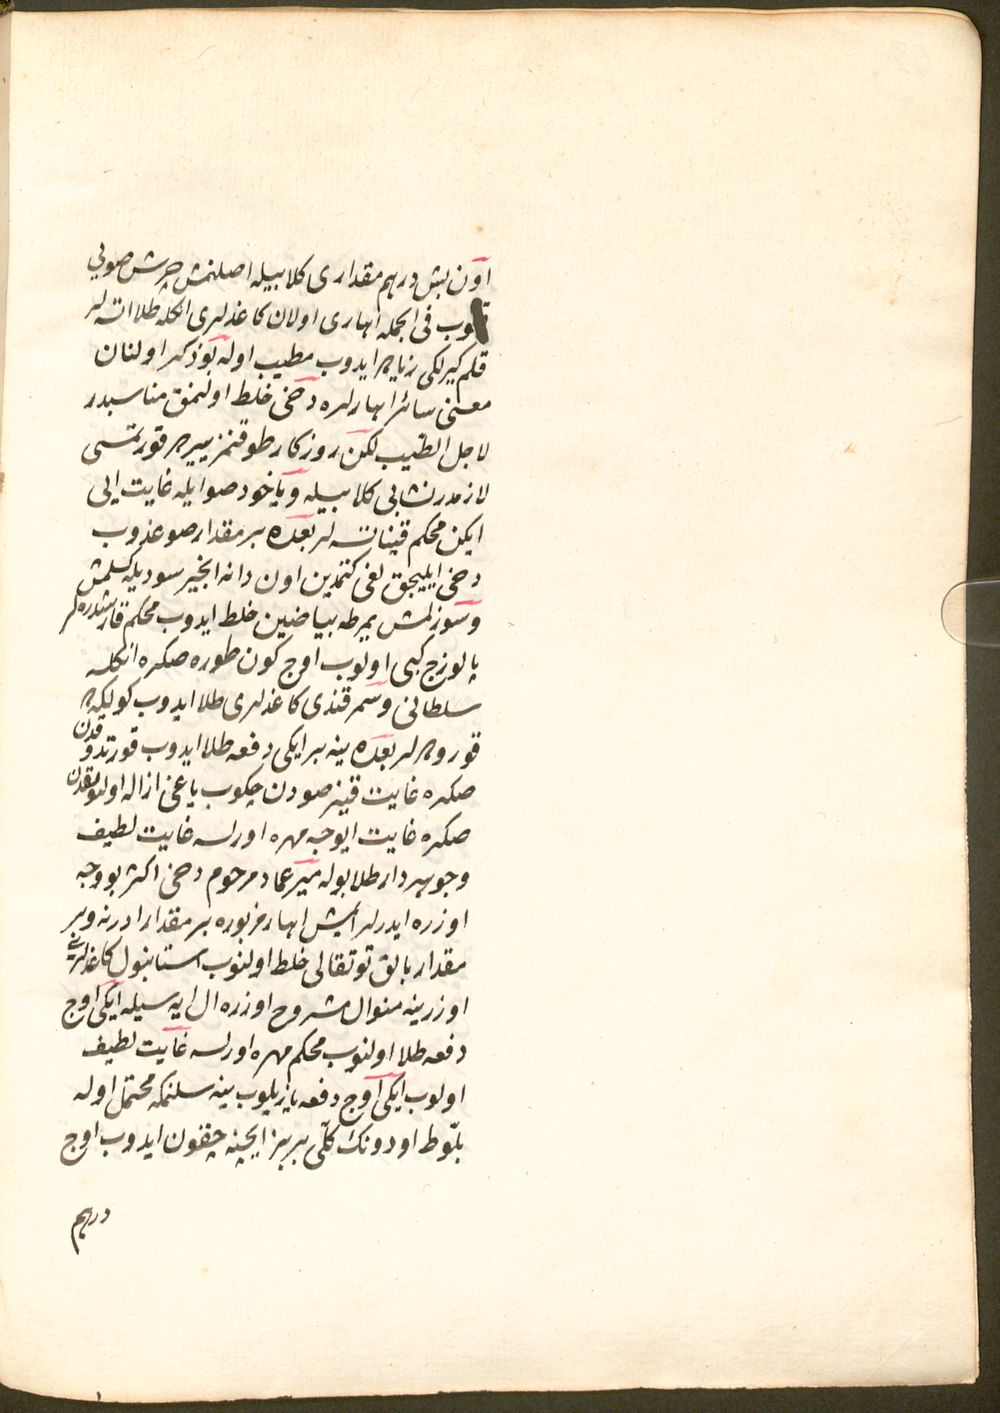 اون بش درهم مقداری کلابیله اصلنمش چرش صویی
قیوب فی الجمله اهاری اولان کاغدلری انکله طلا اته لر
قلم کیرلکی زیاده ایدوب مطیب اوله بو ذکر اولنان
معنی سائر اهارلره دخی خلط اولنمق مناسبدر
لاجل الطیب لکن روزکار طوقنمز ییرده قورتمسی
لازمدر نشایی کلابیله ویاخود صو ایله غایت ایی
ایکن محکم قینات لر بعده بر مقدار صوغدوب
دخی ایلیجق لغی کتمدین اون دانه انجیر سودیله کسلمش
وسوزلمش یمرطه بیاضین خلط ایدوب محکم قارشدره لر
پالوزج کبی اولوب اوج کون طوره صکره انکله
سلطانی وسمرقندی کاغدلری طلا ایدوب کولکه ده
قوروده لر بعده ینه بر ایکی دفعه طلا ایدوب قورتدوقدن
صکره غایت قینز صودن چکوب یاغی ازاله اولندقدن
صکره غایت ایوجه مهره اورلسه غایت لطیف
وجوهردار طلا بوله میر عماد مرحوم دخی اکثر بو وجه
اوزره ایدرلر ایمش اهار مزبوره بر مقدار ادرنه وبر
مقدار بالق توتقالی خلط اولنوب استانبول کاغدلری
اوزرینه منوال مشروح اوزره ال ایه سیله ایکی اوج
دفعه طلا اولنوب محکم مهره اورلسه غایت لطیف
اولوب ایکی اوج دفعه یازیلوب ینه سلنمکه محتمل اوله
بلوط اودونک کلی بر بز ایچنه چقون ایدوب اوج
درهم